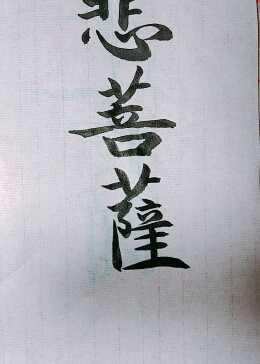 悲菩薩